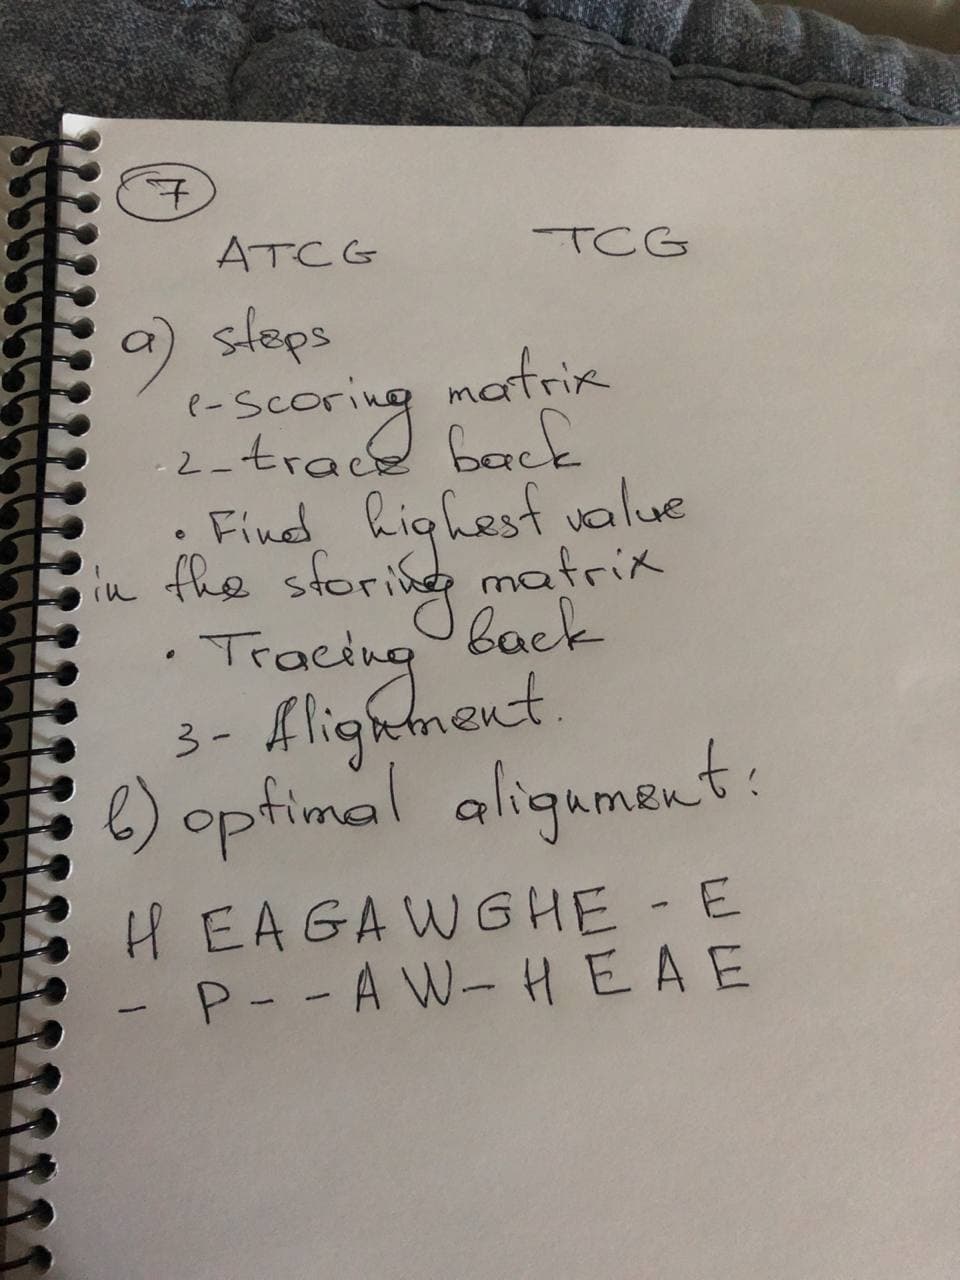 7
ATCG TCG
a) steps
1-scoring matrix
2-trace back
• Find highest value
in the storing matrix
• Tracing back
3- Alignment.
b) optimal alignment:
H EAGAWGHE - E
- P - - A W - H E A E